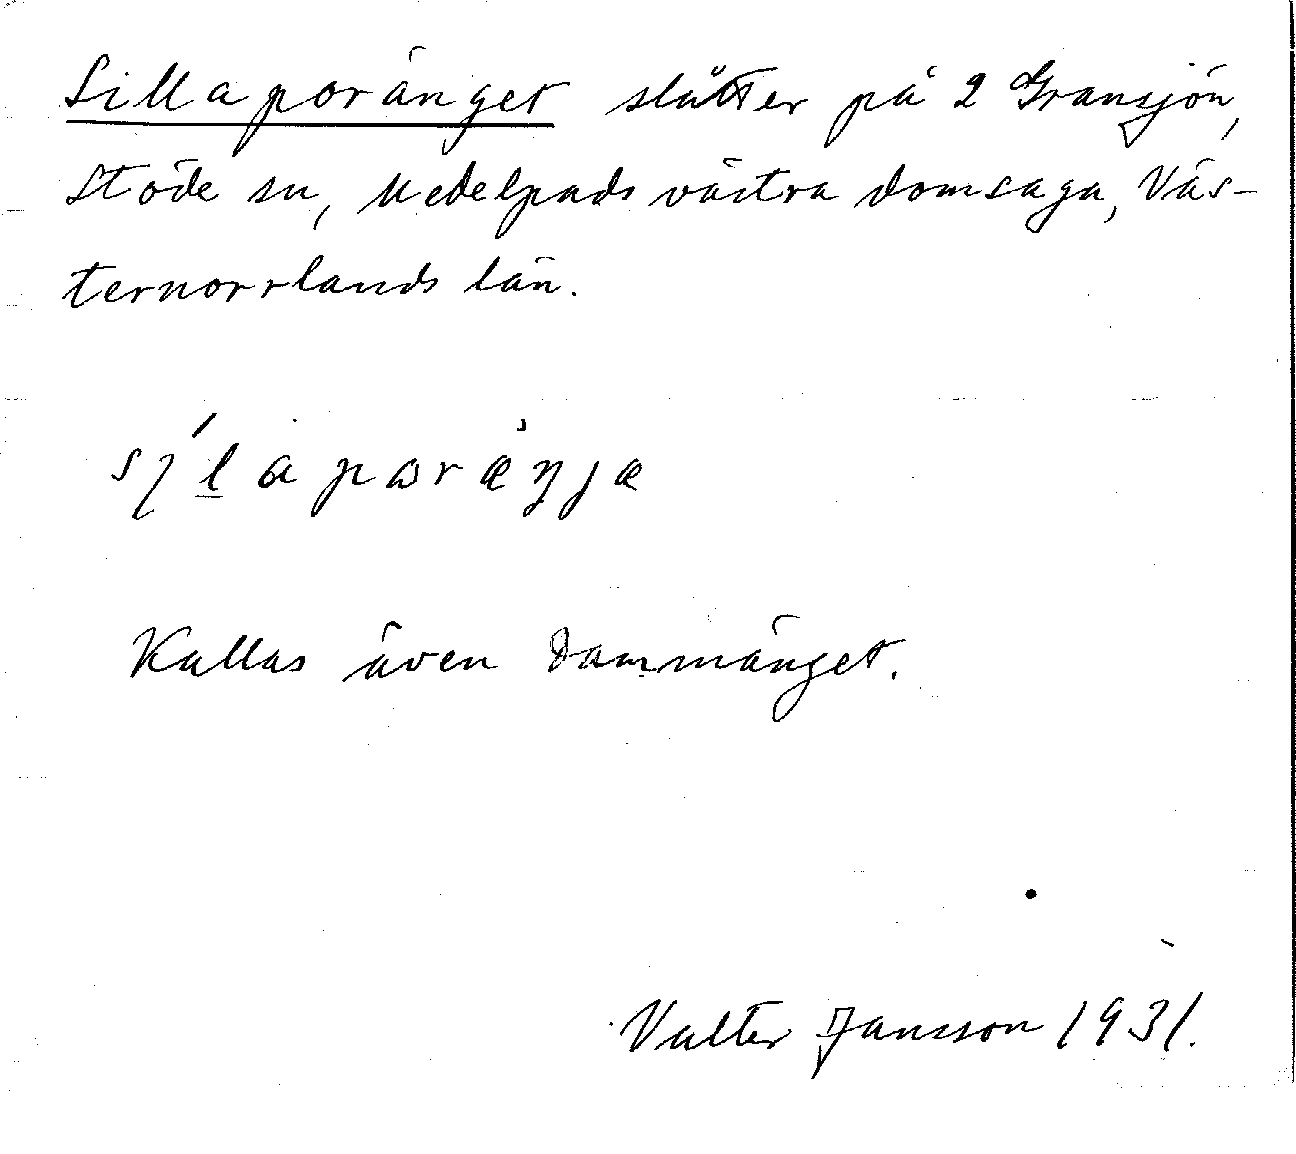 Sillaporänget slåtter på 2 Gransjön,
Stöde sn, Medelpads västra domsaga, Väs-
ternorrlands län.
Kallas även Dammänget.
Valter Jansson 1931.